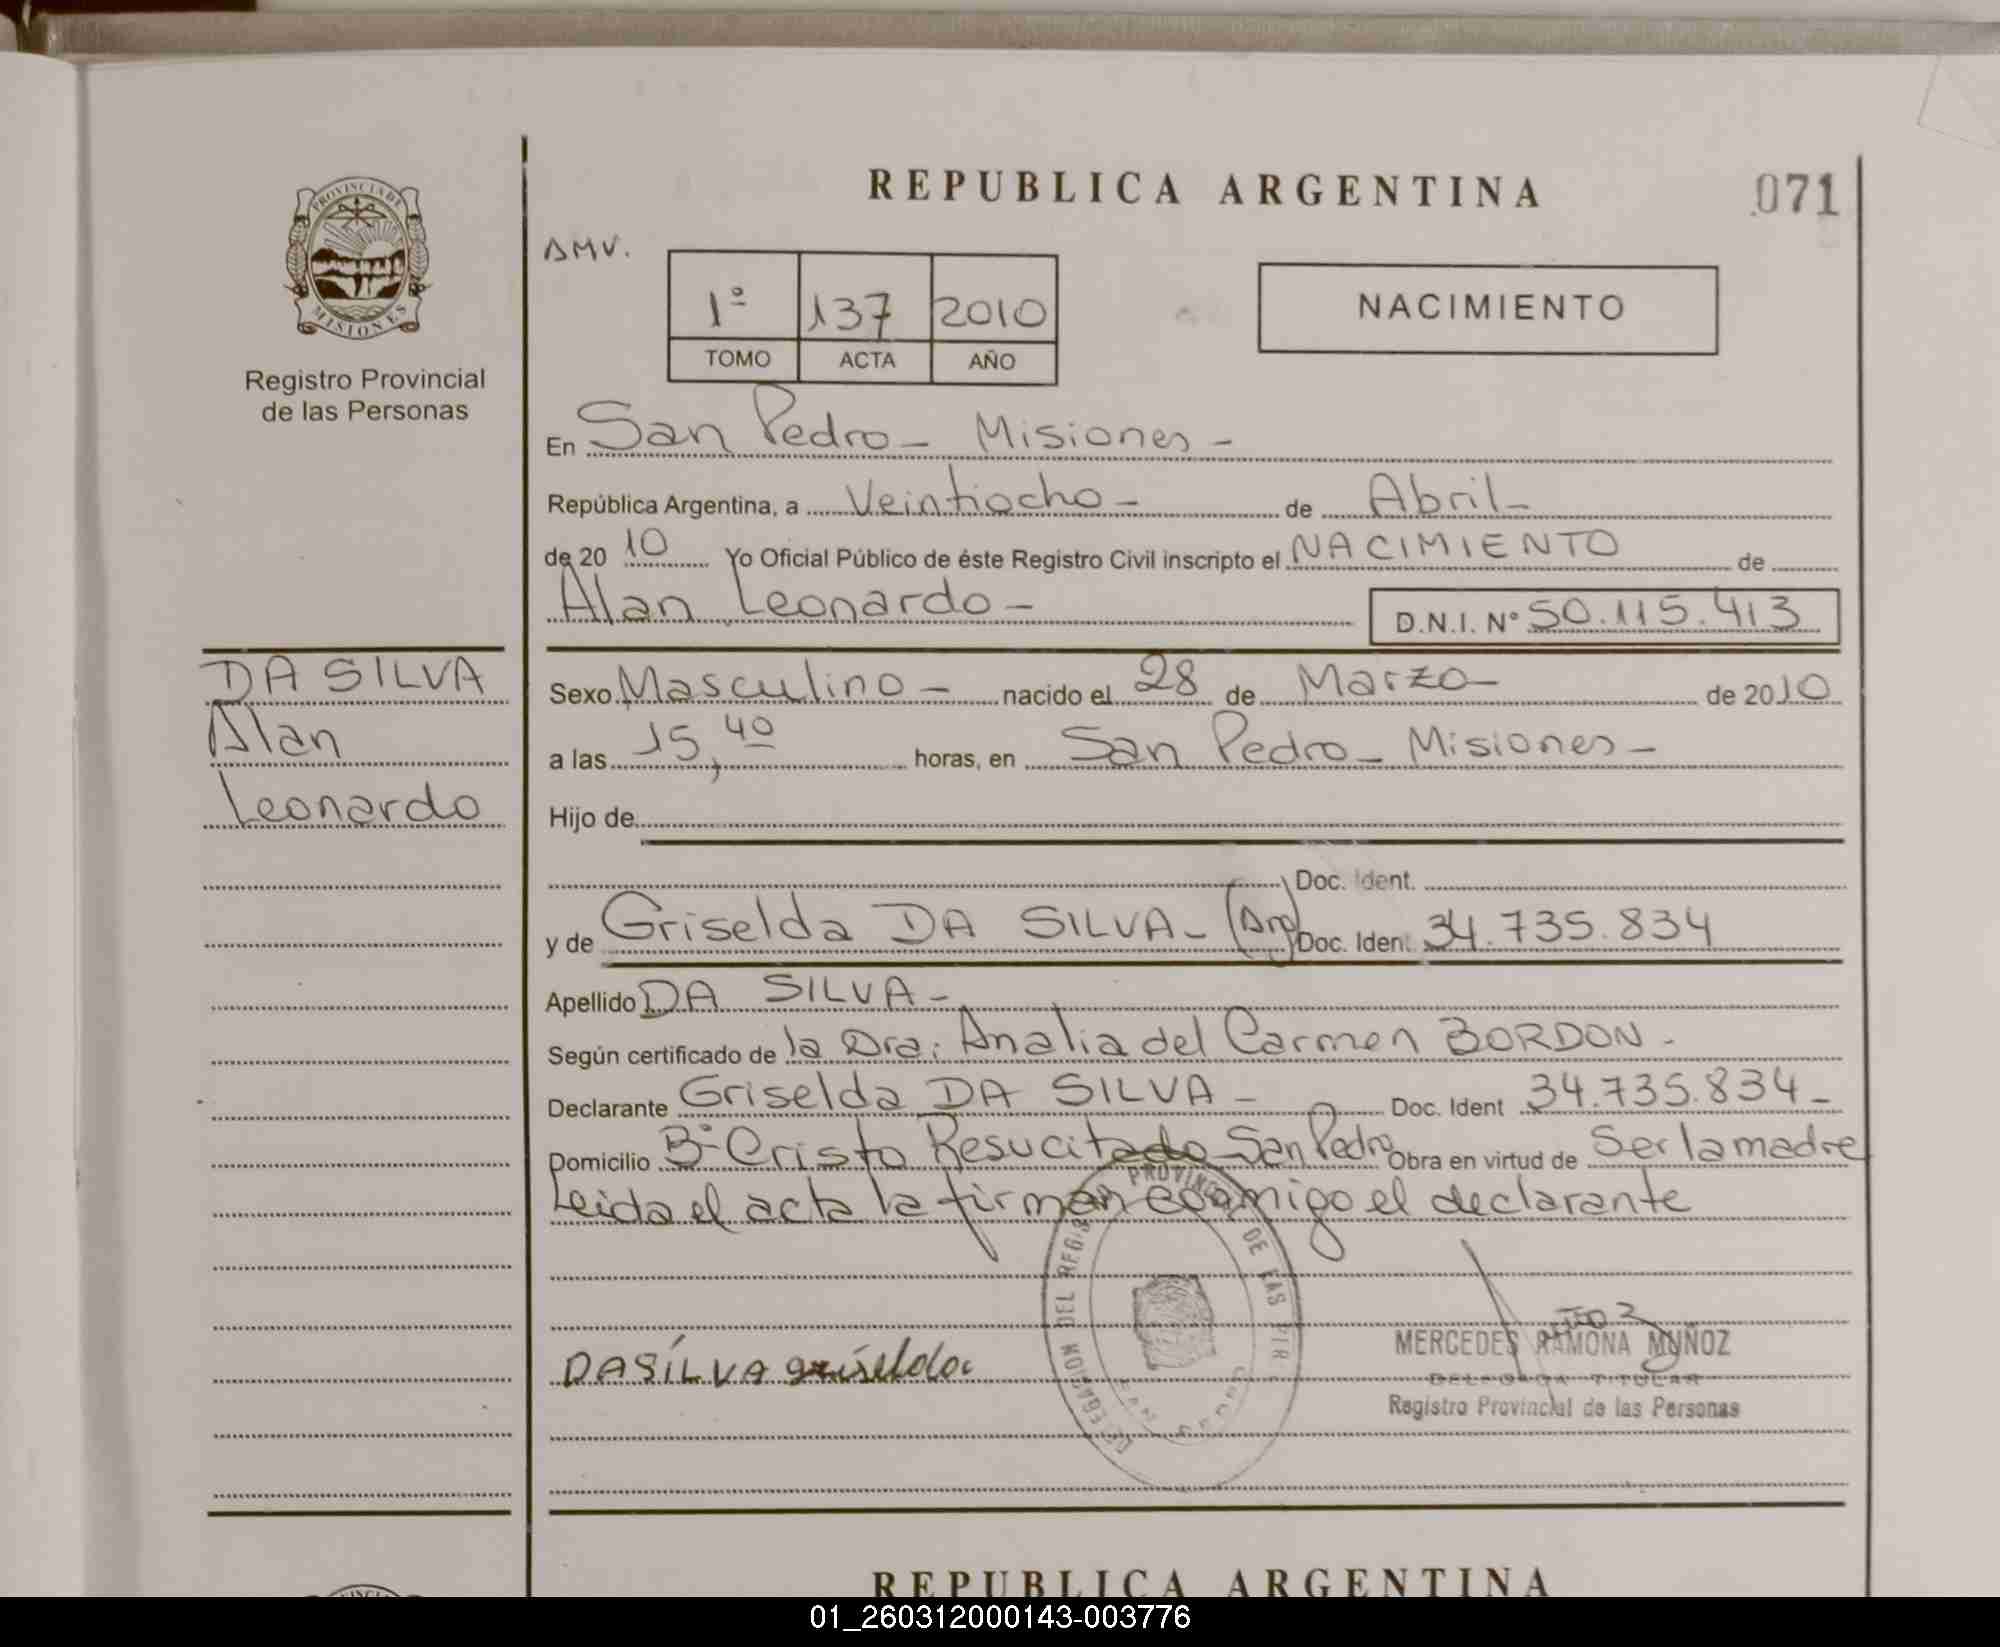 REPUBLICA ARGENTINA
071
PROVINCIA DE
MISIONES
Registro Provincial
de las Personas
AMV.
1º 137 2010
TOMO ACTA AÑO
NACIMIENTO
En San Pedro - Misiones -
República Argentina, a Veintiocho - de Abril -
de 2010 Yo Oficial Público de éste Registro Civil inscripto el NACIMIENTO de
Alan Leonardo - D.N.I. Nº 50.115.413
DA SILVA
Alan
Leonardo
Sexo Masculino - nacido el 28 de Marzo - de 2010
a las 15,40 horas, en San Pedro - Misiones -
Hijo de
Doc. Ident.
y de Griselda DA SILVA - (Arg) Doc. Ident. 34.735.834
Apellido DA SILVA -
Según certificado de la Dra. Analia del Carmen BORDON -
Declarante Griselda DA SILVA - Doc. Ident 34.735.834 -
Domicilio Bº Cristo Resucitado San Pedro Obra en virtud de Ser la madre
Leida el acta la firman conmigo el declarante
DELEGACION DEL REGISTRO PROVINCIAL DE LAS PER
SAN PEDRO
DASÍLVA griselda
MERCEDES RAMONA MUÑOZ
DELEGADA TITULAR
Registro Provincial de las Personas
REPUBLICA ARGENTINA
01_260312000143-003776